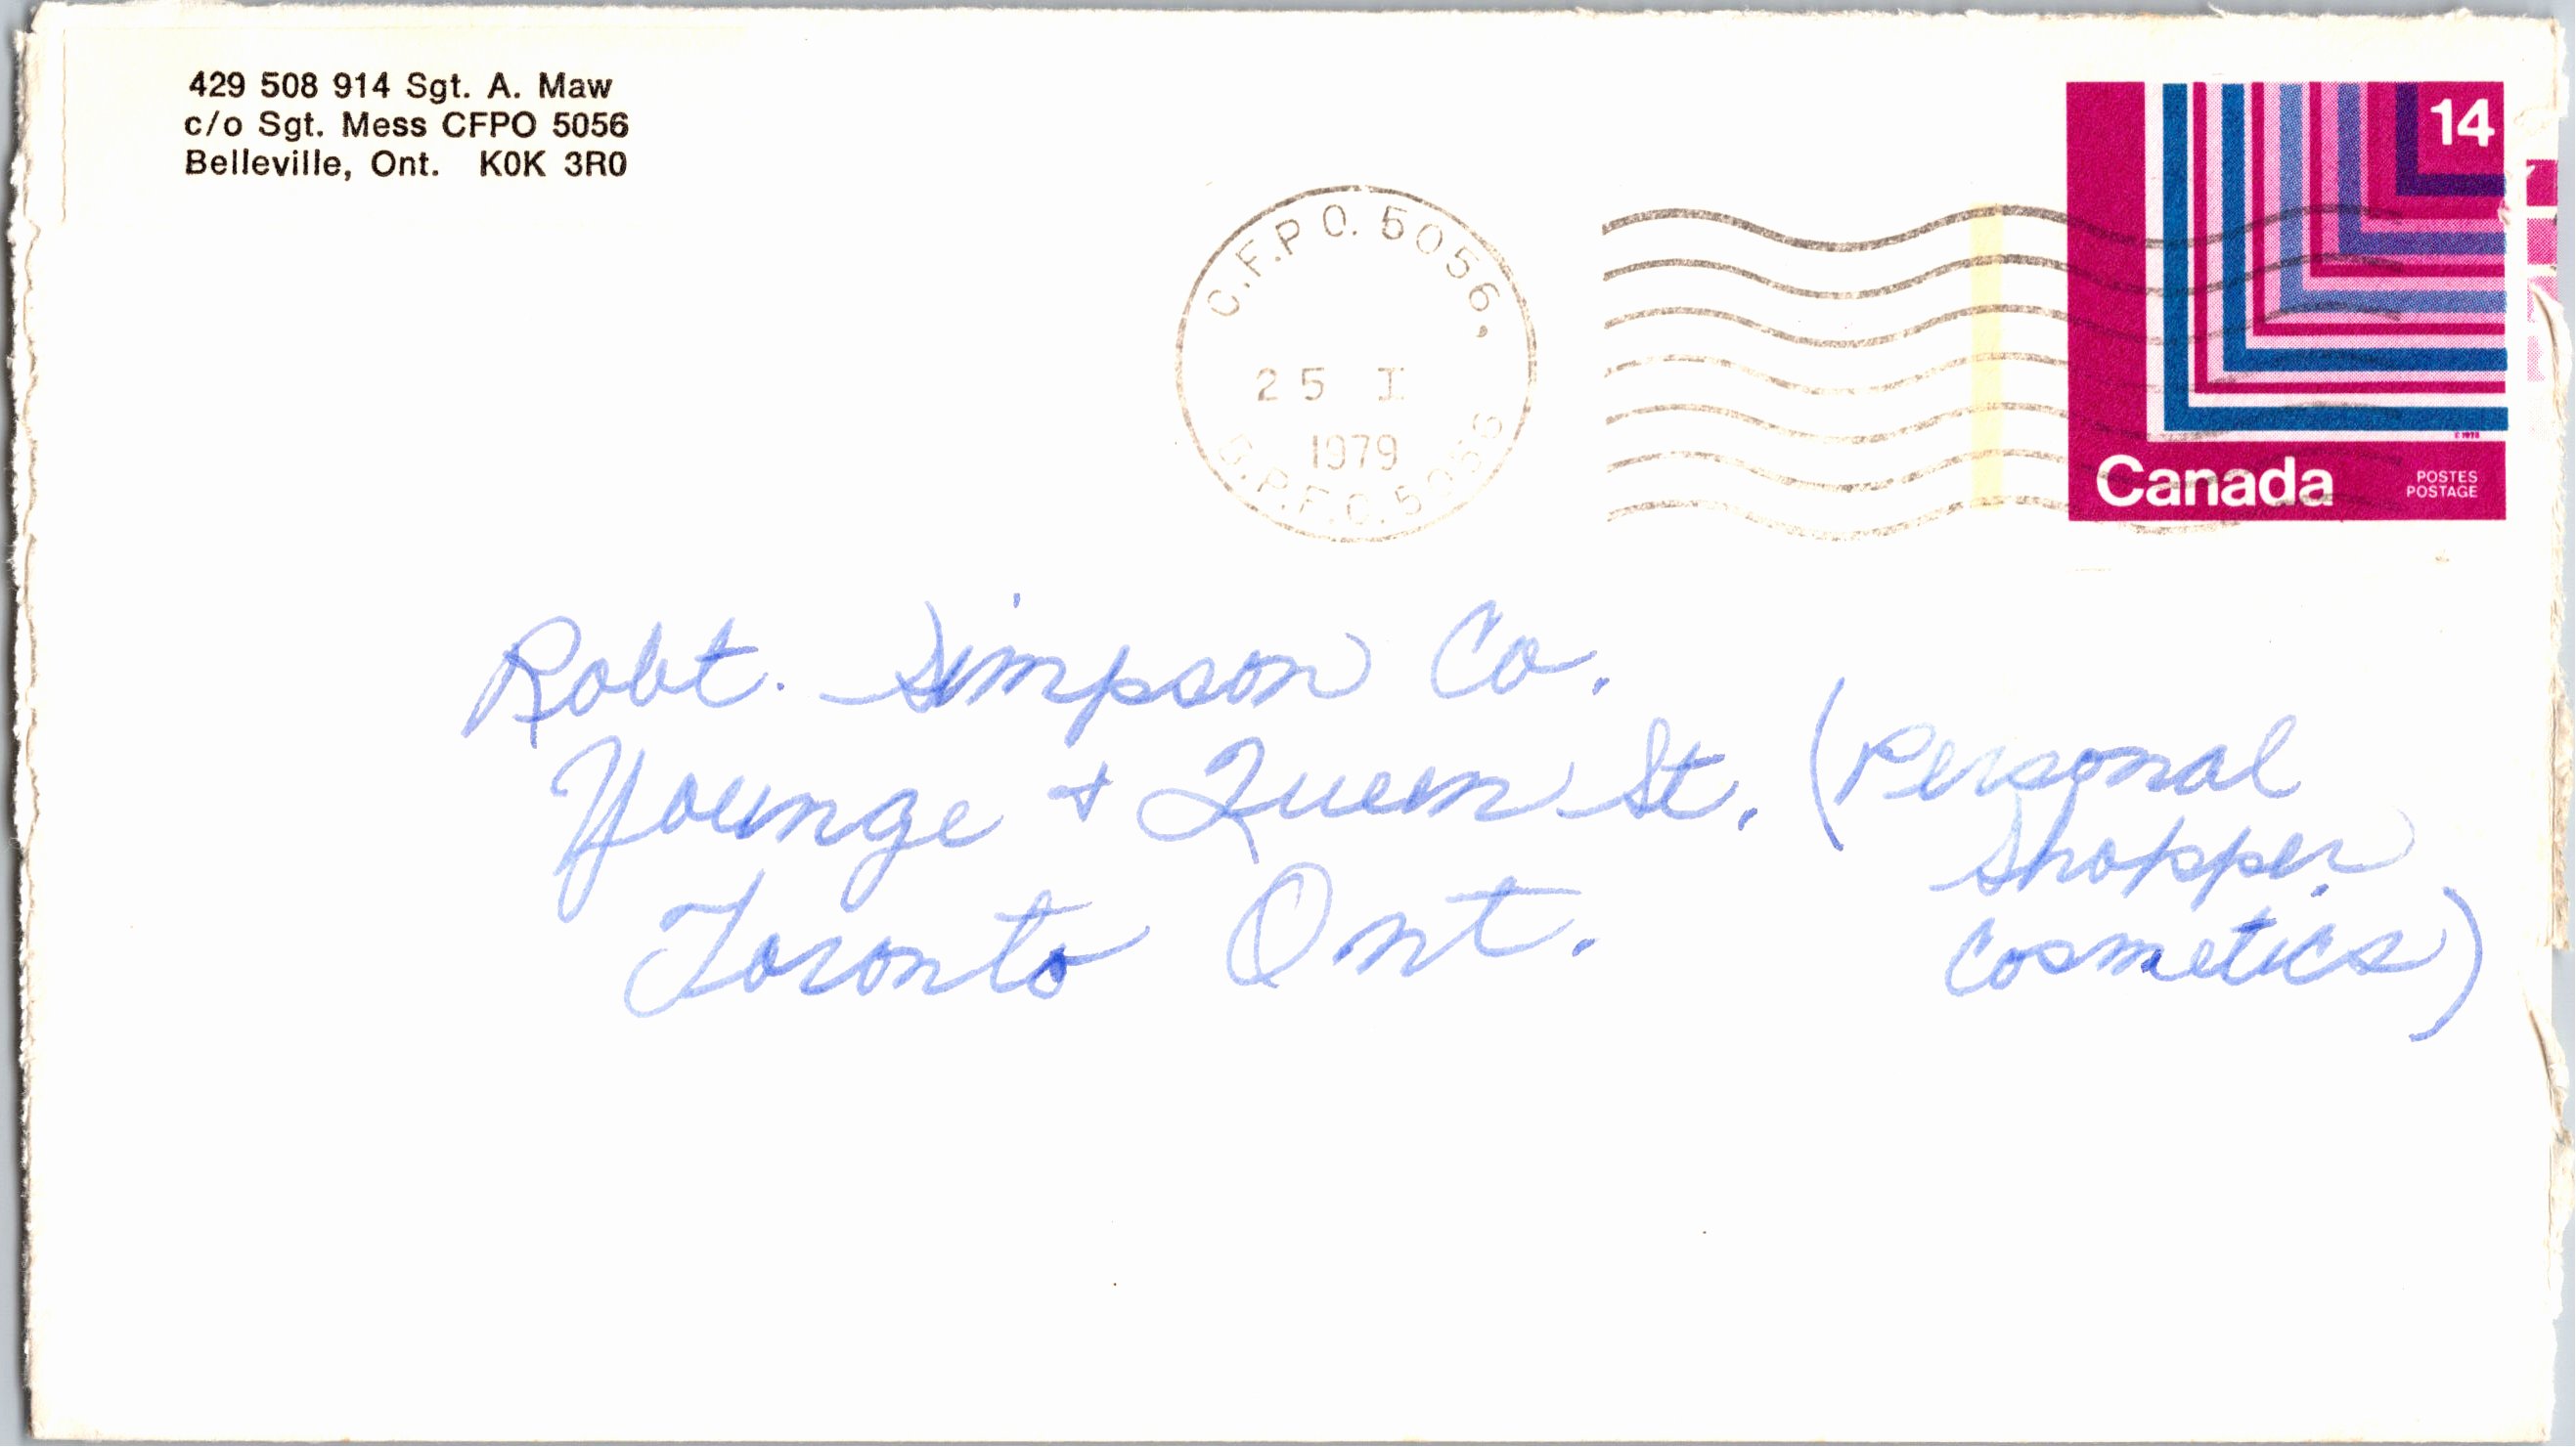 429 508 914 Sgt. A. Maw
c/o Sgt. Mess CFPO 5056
Belleville, Ont. K0K 3R0
14
C.F.P.O. 5056,
25 I
1979
B.P.F.C. 5056
© 1978
Canada
POSTES
POSTAGE
Robt. Simpson Co.
Younge + Queen St. (Personal
Shopper
Toronto Ont.
Cosmetics)